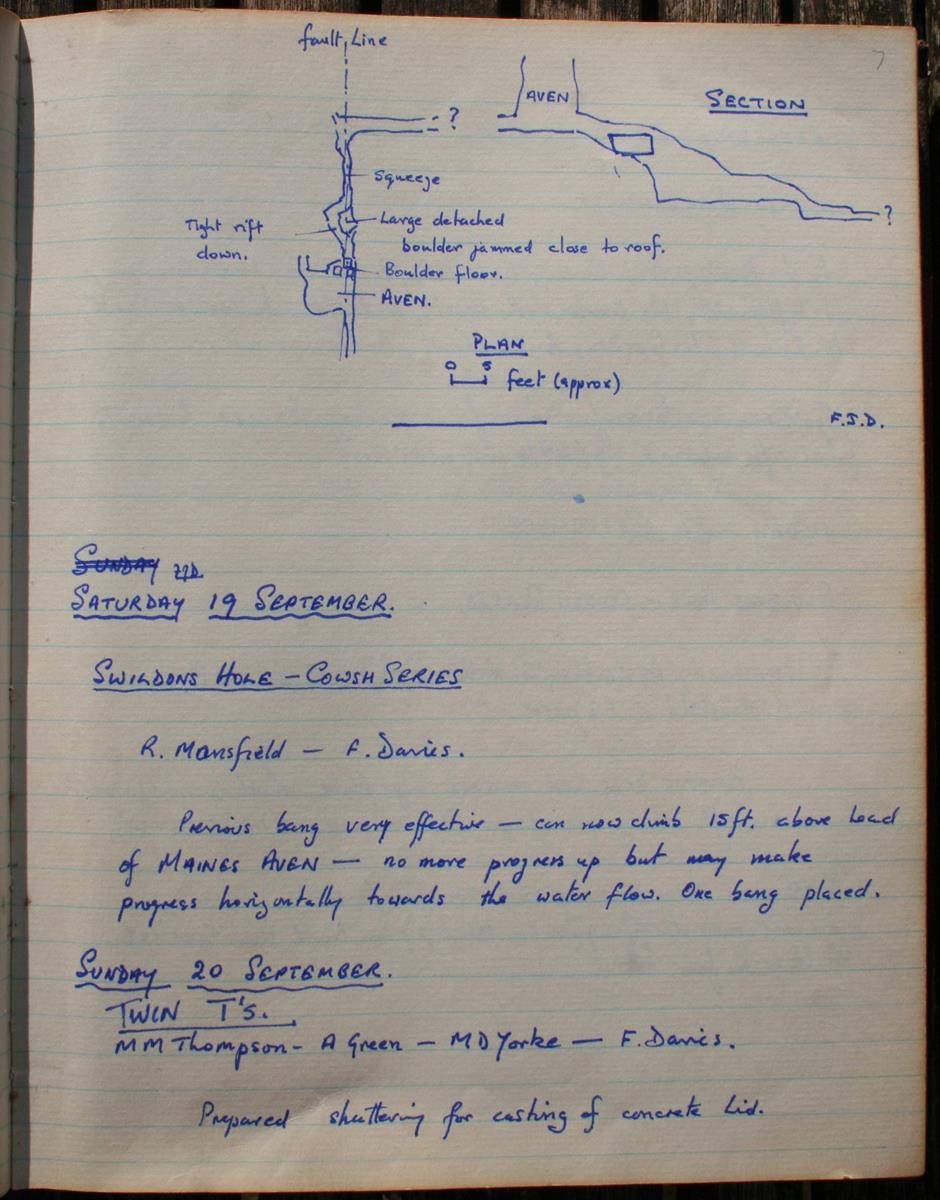 7
fault Line
AVEN
SECTION
?
Squeeze
?
Tight rift
down.
Large detached
boulder jammed close to roof.
Boulder floor.
AVEN.
PLAN
0 5
feet (approx)
F.J.D.
SUNDAY
SATURDAY 19 SEPTEMBER.
SWILDONS HOLE – COWSH SERIES
R. Mansfield — F. Davies.
Previous bang very effective — can now climb 15ft. above head
of MAINES AVEN — no more progress up but may make
progress horizontally towards the water flow. One bang placed.
SUNDAY 20 SEPTEMBER.
TWIN T's.
MM Thompson - A Green — M D Yorke — F. Davies.
Prepared shuttering for casting of concrete Lid.